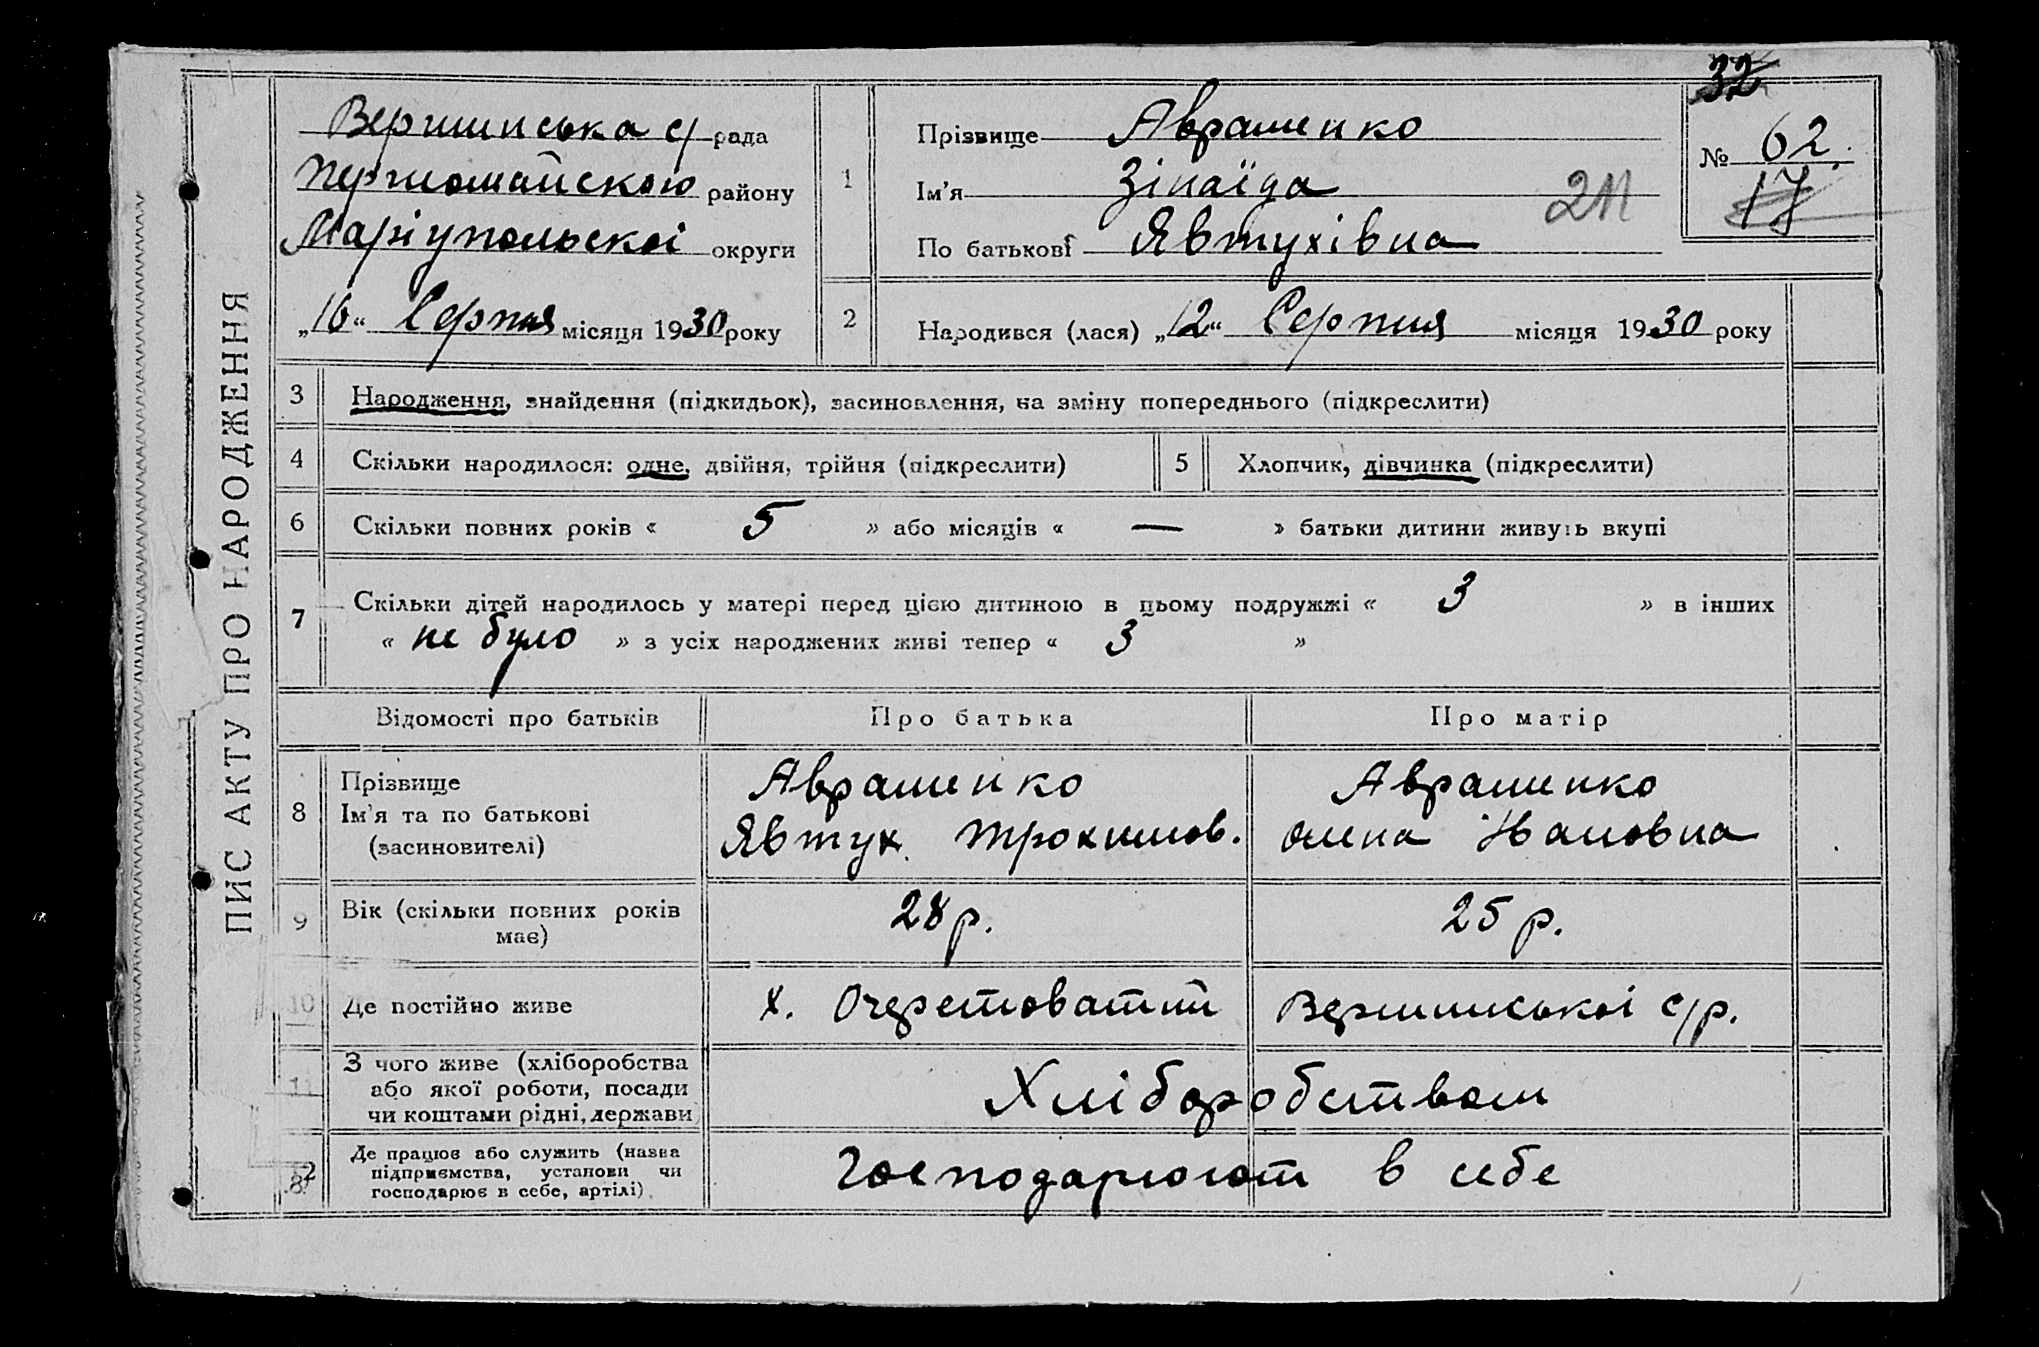 ПИС АКТУ ПРО НАРОДЖЕННЯ
Вершинська с/рада
Першомайского району
Маріупольскоі округи
„16“ Серпня місяця 1930 року
32
№ 62.
17
1
Прізвище Аврашенко
Ім’я Зінаїда
2П
По батькові Явтухівна
2
Народився (лася) „12“ Серпния місяця 1930 року
3 Народження, знайдення (підкидьок), засиновлення, на зміну попереднього (підкреслити)
4 Скільки народилося: одне, двійня, трійня (підкреслити) 5 Хлопчик, дівчинка (підкреслити)
6 Скільки повних років « 5 » або місяців « — » батьки дитини живуть вкупі
7 Скільки дітей народилось у матері перед цією дитиною в цьому подружжі « 3 » в інших
« не було » з усіх народжених живі тепер « 3 »
Відомості про батьків Про батька Про матір
8 Прізвище Аврашенко Аврашенко
Ім’я та по батькові Явтух Трохимов. Олена Івановна
(засиновителі)
9 Вік (скільки повних років 28 р. 25 р.
має)
10 Де постійно живе х. Очеретоватий Вершинськоі с/р.
11 З чого живе (хліборобства
або якої роботи, посади Хліборобством
чи коштами рідні, держави
Де працює або служить (назва
підприємства, установи чи Господарюют в себе
господарює в себе, артілі)